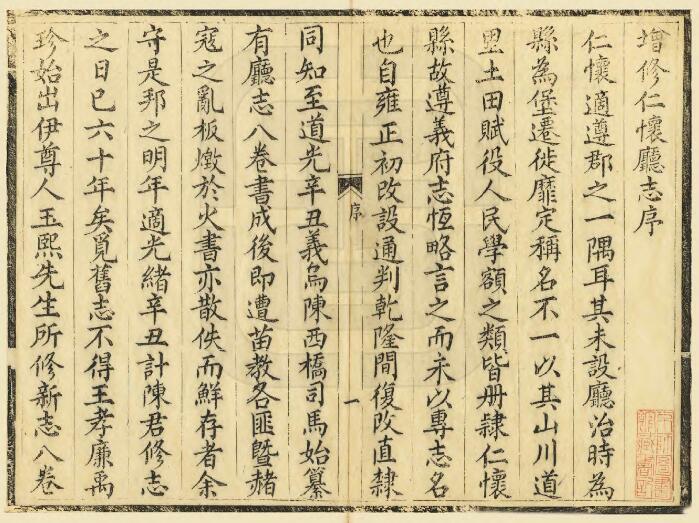 增修仁懷廳志序
仁懷適遵郡之一隅耳其未設廳治時為
縣為堡遷徙靡定稱名不一以其山川道
里土田賦役人民學額之類皆册隸仁懷
縣故遵義府志恆略言之而未以專志名
也自雍正初改設通判乾隆間復改直隸
序
一
同知至道光辛丑義烏陳西橋司馬始纂
有廳志八卷書成後即遭苗教各匪暨赭
寇之亂板燬於火書亦散佚而鮮存者余
守是邦之明年適光緒辛丑計陳君修志
之日已六十年矣覓舊志不得王孝廉禹
珍始出伊尊人玉熙先生所修新志八卷